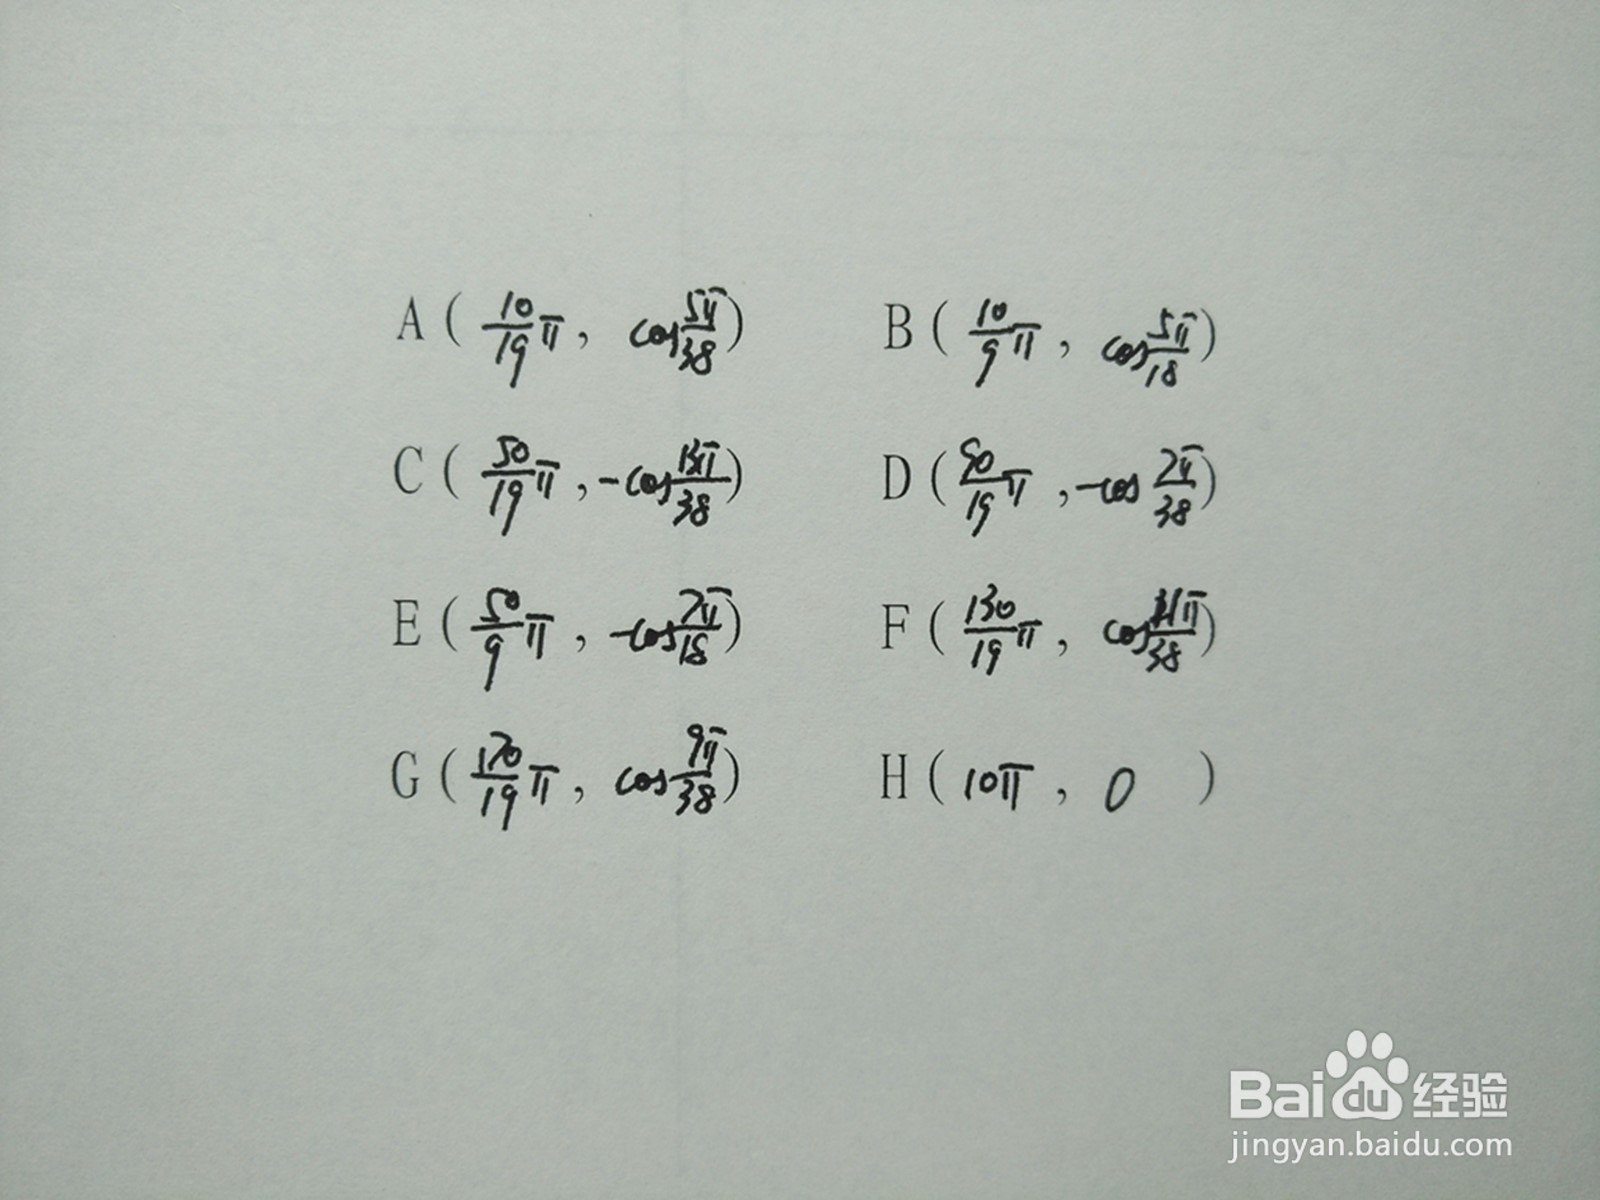 A ( 10/19 π, cos 5π/38 ) B ( 10/9 π, cos 5π/18 )
C ( 50/19 π, -cos 13π/38 ) D ( 90/19 π, -cos 7π/38 )
E ( 50/9 π, -cos 7π/18 ) F ( 130/19 π, cos 11π/38 )
G ( 170/19 π, cos 9π/38 ) H ( 10π, 0 )
Bai du 经验
jingyan.baidu.com